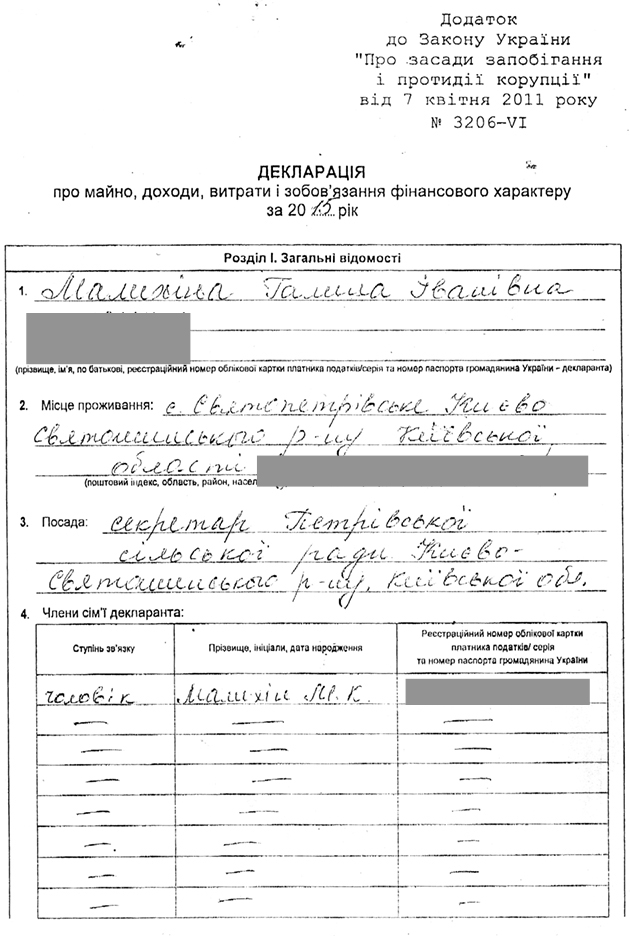 Додаток
до Закону України
"Про засади запобігання
і протидії корупції"
від 7 квітня 2011 року
№ 3206-VI
ДЕКЛАРАЦІЯ
про майно, доходи, витрати і зобов'язання фінансового характеру
за 2015 рік
Розділ І. Загальні відомості
1. Малихіна Галина Іванівна
(прізвище, ім'я, по батькові, реєстраційний номер облікової картки платника податків/серія та номер паспорта громадянина України – декларанта)
2. Місце проживання: с. Святопетрівське Києво
Святошинського р-ну Київської
області
(поштовий індекс, область, район, насел
3. Посада: секретар Петрівської
сільської ради Києво-
Святошинського р-ну, Київської обл.
4. Члени сім'ї декларанта:
Ступінь зв'язку
Прізвище, ініціали, дата народження
Реєстраційний номер облікової картки
платника податків/ серія
та номер паспорта громадянина України
чоловік Малихін М. К.